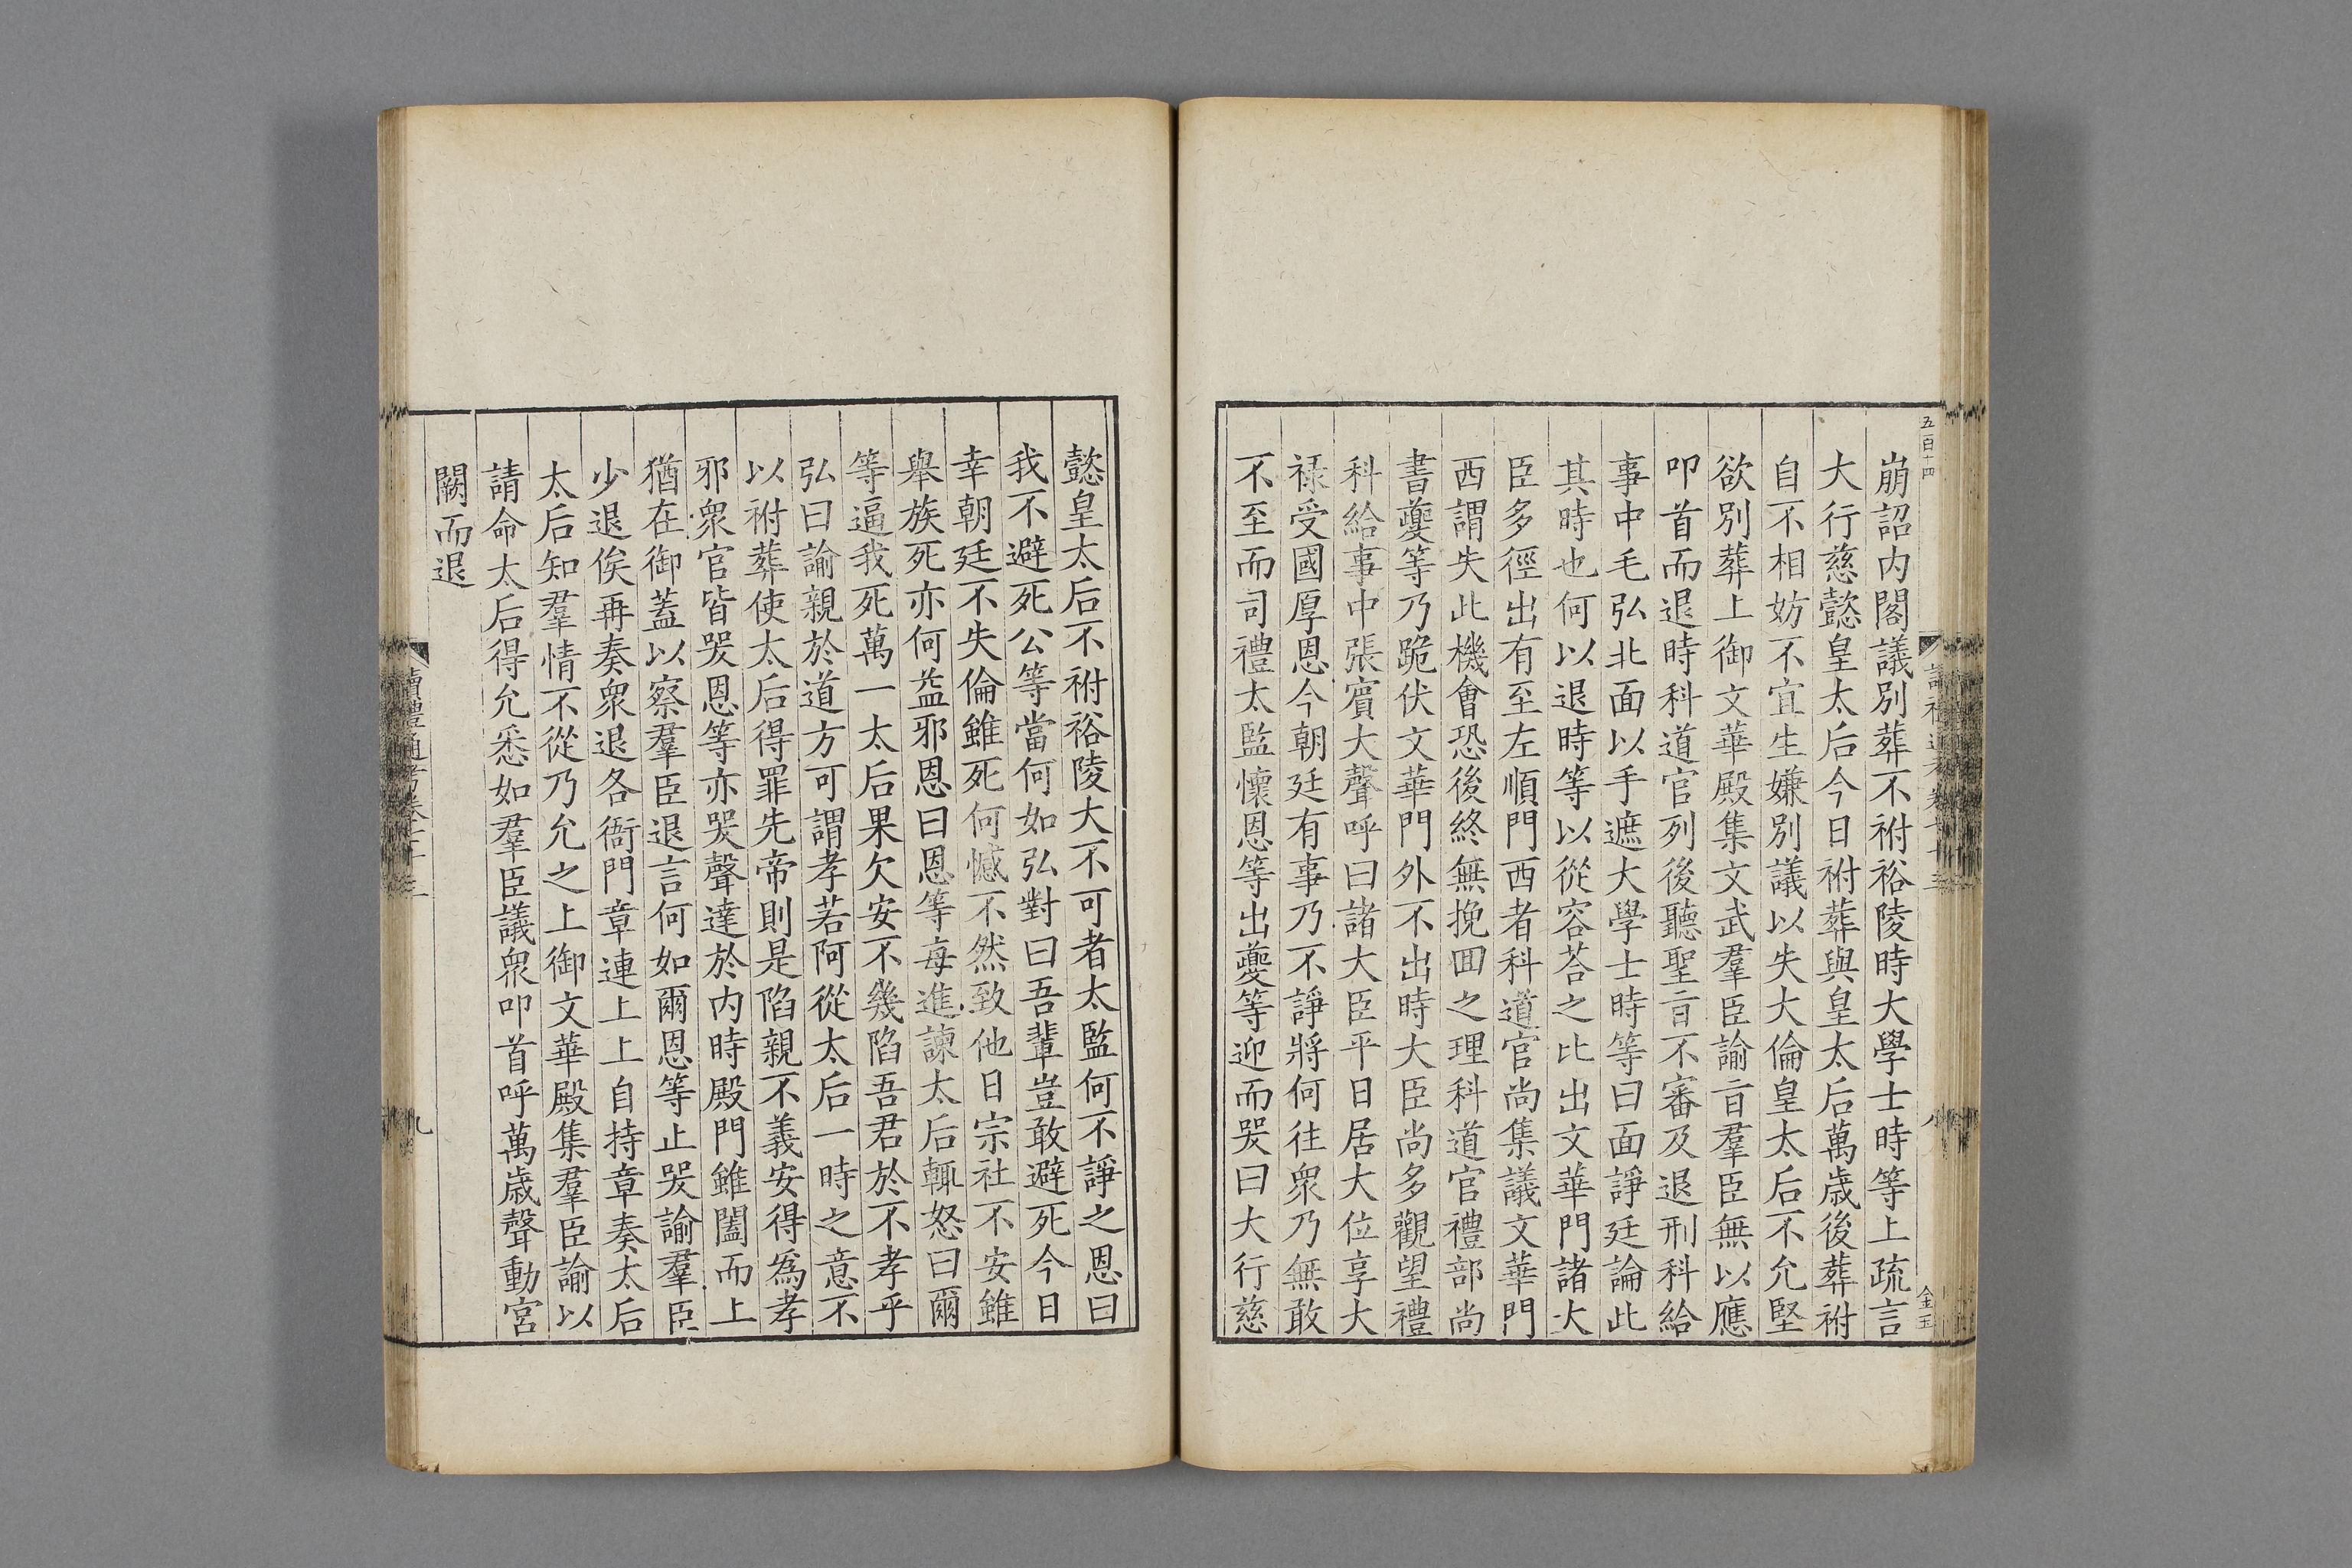 五百十四
崩詔内閣議別葬不祔裕陵時大學士時等上疏言
大行慈懿皇太后今日祔葬與皇太后萬歲後葬祔
自不相妨不宜生嫌別議以失大倫皇太后不允堅
欲別葬上御文華殿集文武羣臣諭㫖羣臣無以應
叩首而退時科道官列後聽聖㫖不審及退刑科給
事中毛弘北面以手遮大學士時等曰面諍廷論此
其時也何以退時等以從容荅之比出文華門諸大
臣多徑出有至左順門西者科道官尚集議文華門
西謂失此機會恐後終無挽回之理科道官禮部尚
書夔等乃跪伏文華門外不出時大臣尚多觀望禮
科給事中張賓大聲呼曰諸大臣平日居大位享大
禄受國厚恩今朝廷有事乃不諍將何往衆乃無敢
不至而司禮太監懷恩等出夔等迎而哭曰大行慈
懿皇太后不祔裕陵大不可者太監何不諍之恩曰
我不避死公等當何如弘對曰吾輩豈敢避死今日
幸朝廷不失倫雖死何憾不然致他日宗社不安雖
舉族死亦何益邪恩曰恩等每進諫太后輒怒曰爾
等逼我死萬一太后果欠安不幾陷吾君於不孝乎
弘曰諭親於道方可謂孝若阿從太后一時之意不
以祔葬使太后得罪先帝則是陷親不義安得爲孝
邪衆官皆哭恩等亦哭聲達於内時殿門雖闔而上
猶在御蓋以察羣臣退言何如爾恩等止哭諭羣臣
少退俟再奏衆退各衙門章連上上自持章奏太后
太后知羣情不從乃允之上御文華殿集羣臣諭以
請命太后得允悉如羣臣議衆叩首呼萬歲聲動宮
闕而退
讀禮通考卷
九